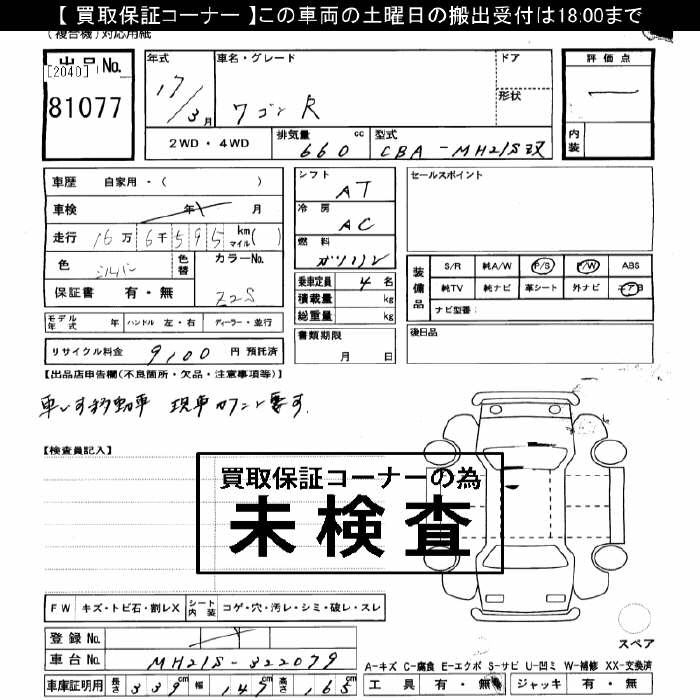 【 買取保証コーナー 】この車両の土曜日の搬出受付は18:00まで
(複合機)対応用紙
出品 No.
[2040]
81077
年式
17/3 月
車名・グレード
ワゴン R
ドア
形状
評価点
一
内装
2WD・4WD
排気量 660 cc
型式 CBA - MH21S改
車歴 自家用・( )
車検 年 月
走行 16万 6千 5 9 5 km マイル( )
色 シルバー
色替
カラーNo. Z2S
保証書 有・無
モデル年式 年 ハンドル 左・右 ディーラー・並行
リサイクル料金 9,100 円 預託済
シフト AT
冷房 AC
燃料 ガソリン
乗車定員 4 名
積載量 kg
総重量 kg
書類期限 月 日
セールスポイント
装備品
S/R 純A/W P/S P/W ABS
純TV 純ナビ 革シート 外ナビ エアB
ナビ型番:
後日品
【出品店申告欄(不良箇所・欠品・注意事項等)】
車いす移動車 現車カクニン要す.
【検査員記入】
買取保証コーナーの為
未検査
FW キズ・トビ石・割レX シート内装 コゲ・穴・汚レ・シミ・破レ・スレ
登録 No.
車台 No. MH21S-322079
車庫証明用 長さ 339 cm 幅 147 cm 高さ 165 cm
スペア
A-キズ C-腐食 E-エクボ S-サビ U-凹ミ W-補修 XX-交換済
工具 有・無 ジャッキ 有・無